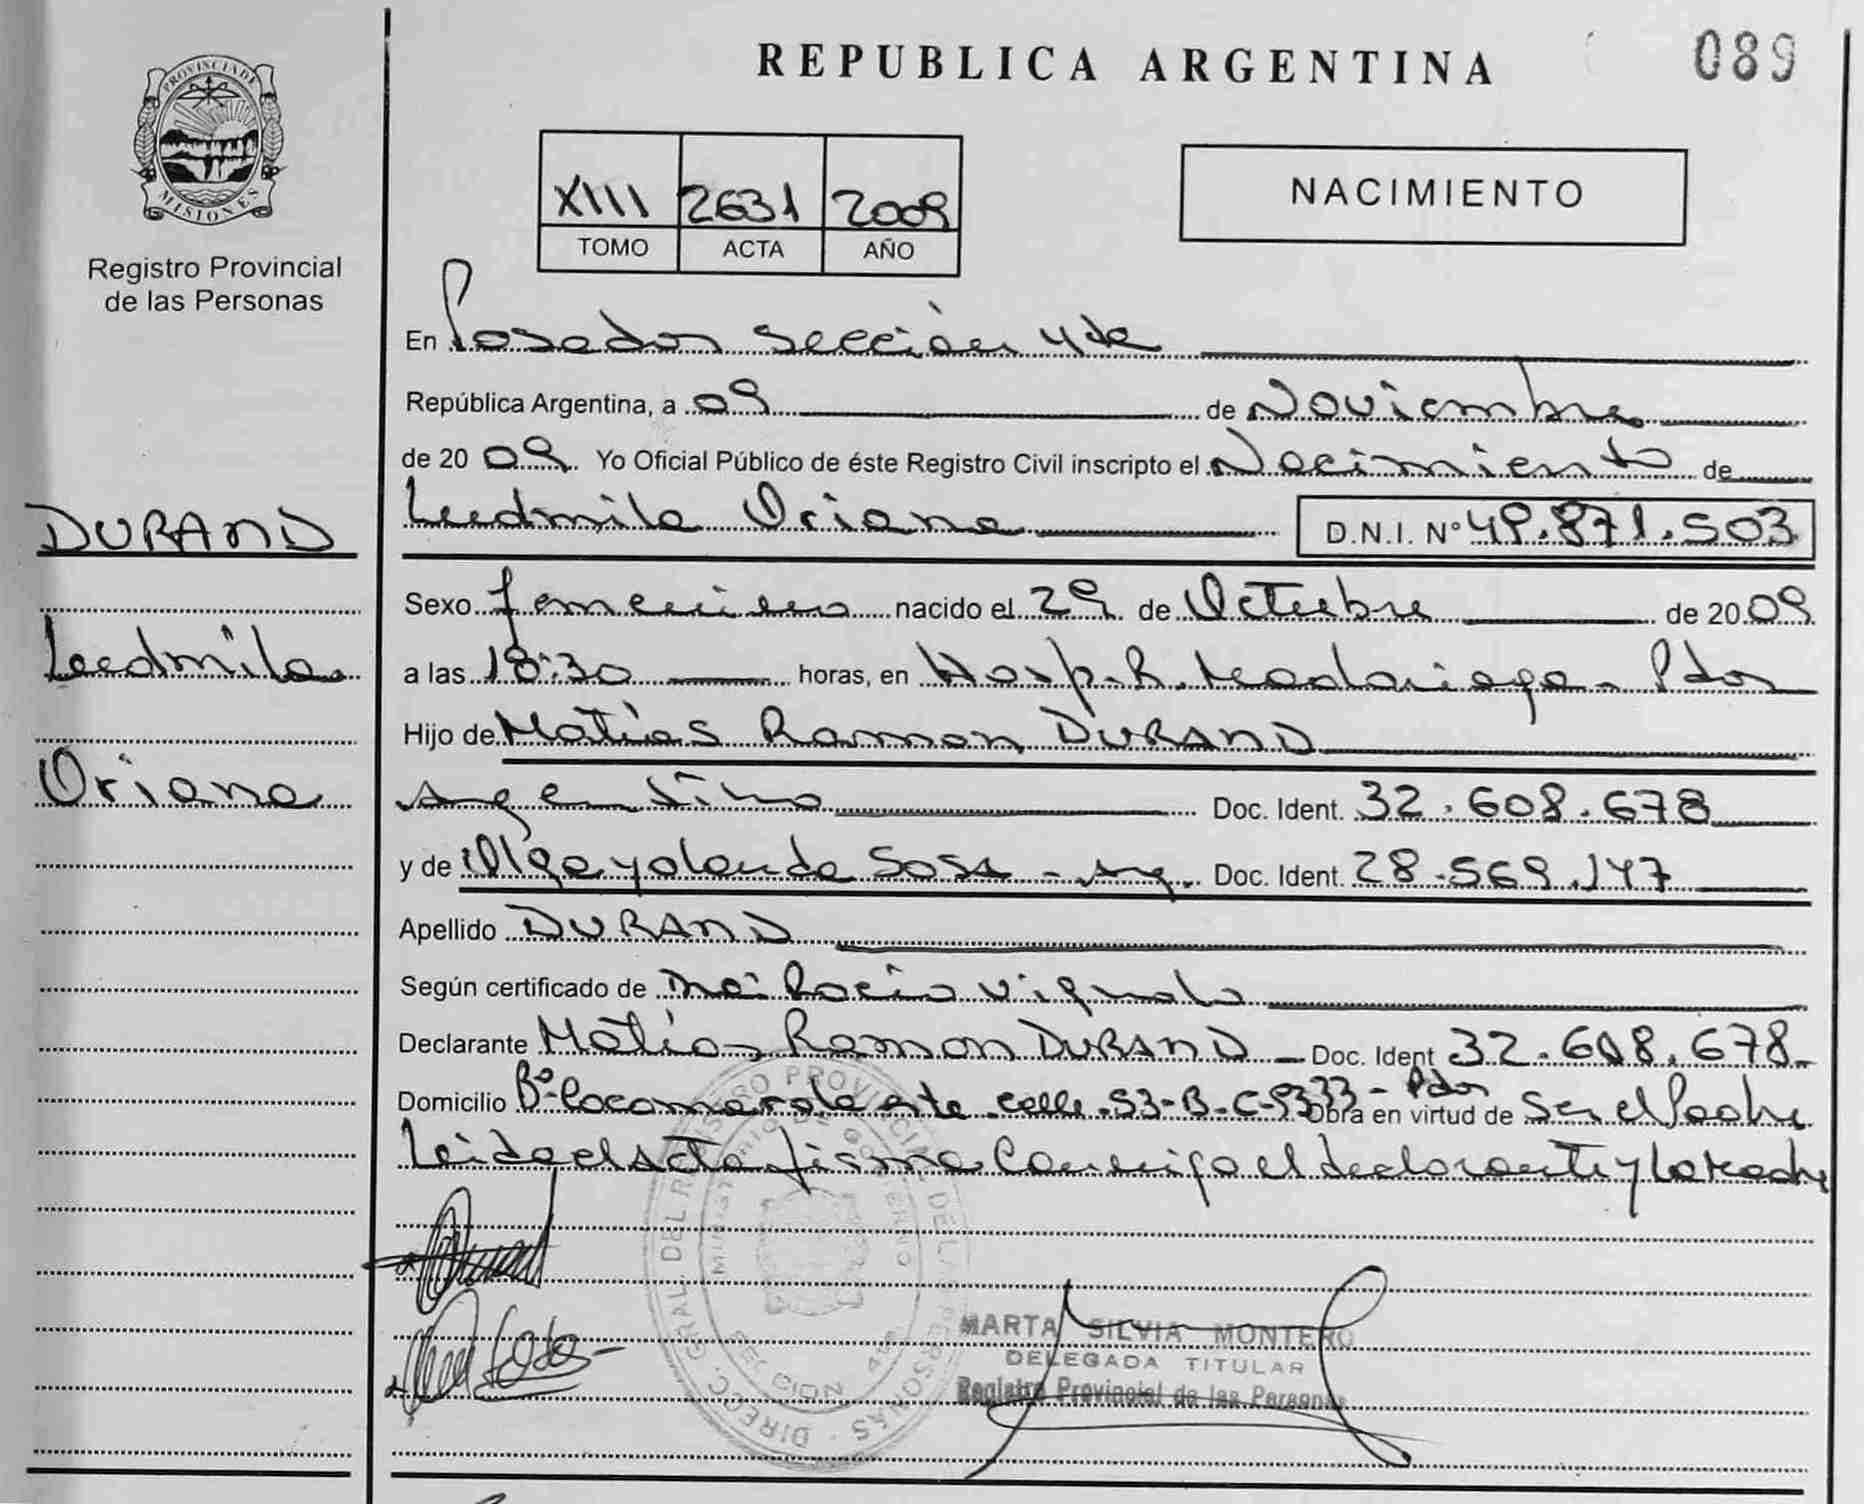 REPUBLICA ARGENTINA
089
PROVINCIA DE
MISIONES
Registro Provincial
de las Personas
XIII 2631 2009
TOMO ACTA AÑO
NACIMIENTO
En Posadas sección 4ta
República Argentina, a 09 de Noviembre
de 2009 Yo Oficial Público de éste Registro Civil inscripto el Nacimiento de
Ludmila Oriana D.N.I. N° 49.871.503
DURAND
Ludmila
Oriana
Sexo femenino nacido el 29 de Octubre de 2009
a las 18:30 horas, en Hosp. R. Madariaga - Pdas
Hijo de Matías Ramon DURAND
Argentino Doc. Ident. 32.608.678
y de Olga yolanda SOSA - Arg. Doc. Ident. 28.569.147
Apellido DURAND
Según certificado de Rocío Vignolo
Declarante Matías Ramon DURAND - Doc. Ident 32.608.678-
Domicilio B° Cocomarola este calle 53-B-C-9333 - Pdas Obra en virtud de Ser el Padre
Leida el Acta firma Conmigo el declarante y la Madre
DIRECC. GRAL. DEL REGISTRO PROVINCIAL DE LAS PERSONAS
MINISTERIO DE GOBIERNO
SECCION 4ta
MARTA SILVIA MONTERO
DELEGADA TITULAR
Registro Provincial de las Personas